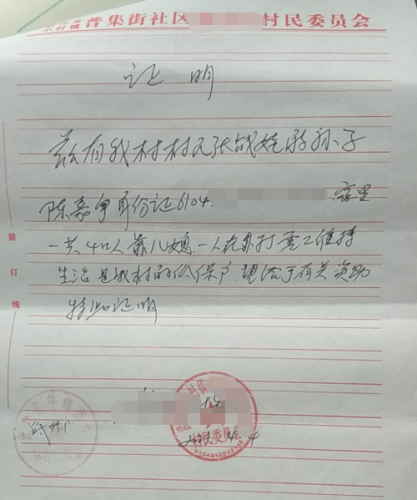 普集街社区 村民委员会
证明
兹有我村村民张战娃的孙子
陈嘉 身份证6104 家里
一共4口人靠儿媳一人在外打零工维持
生活是我村的低保户,望给予有关资助
特此证明
装订线
村民委员会